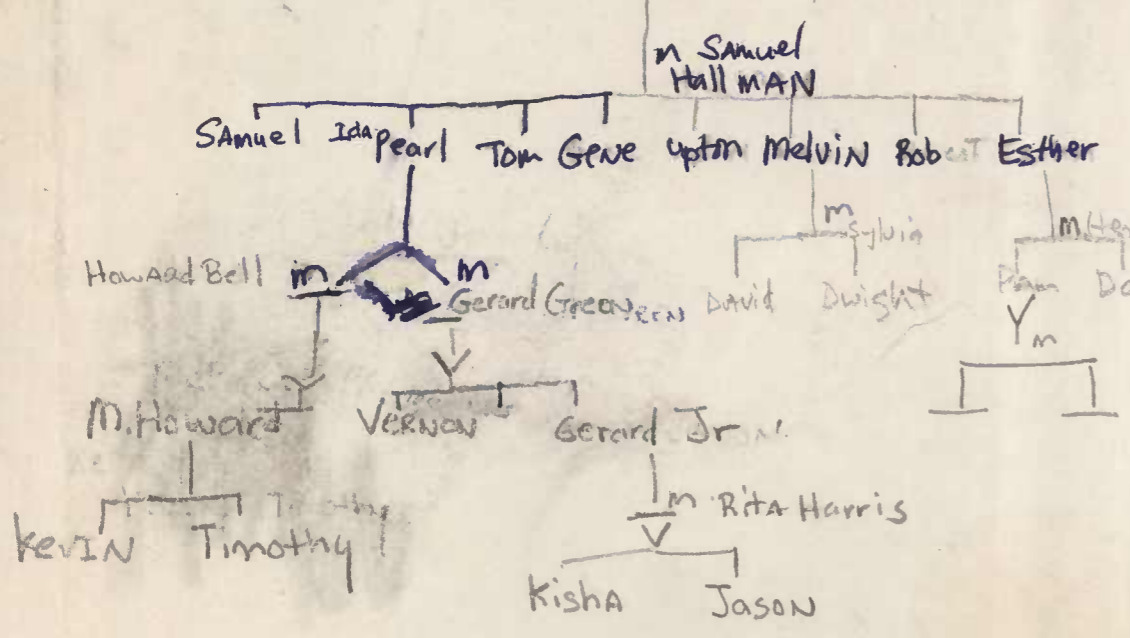 m Samuel
Hallman
Samuel Ida Pearl Tom Gene Upton Melvin Robert Esther
m Sylvia m
Howard Bell m m
Gerard David Dwight Pam
m
M. Howard Vernon Gerard Jr
m Rita Harris
Kevin Timothy
Kisha Jason